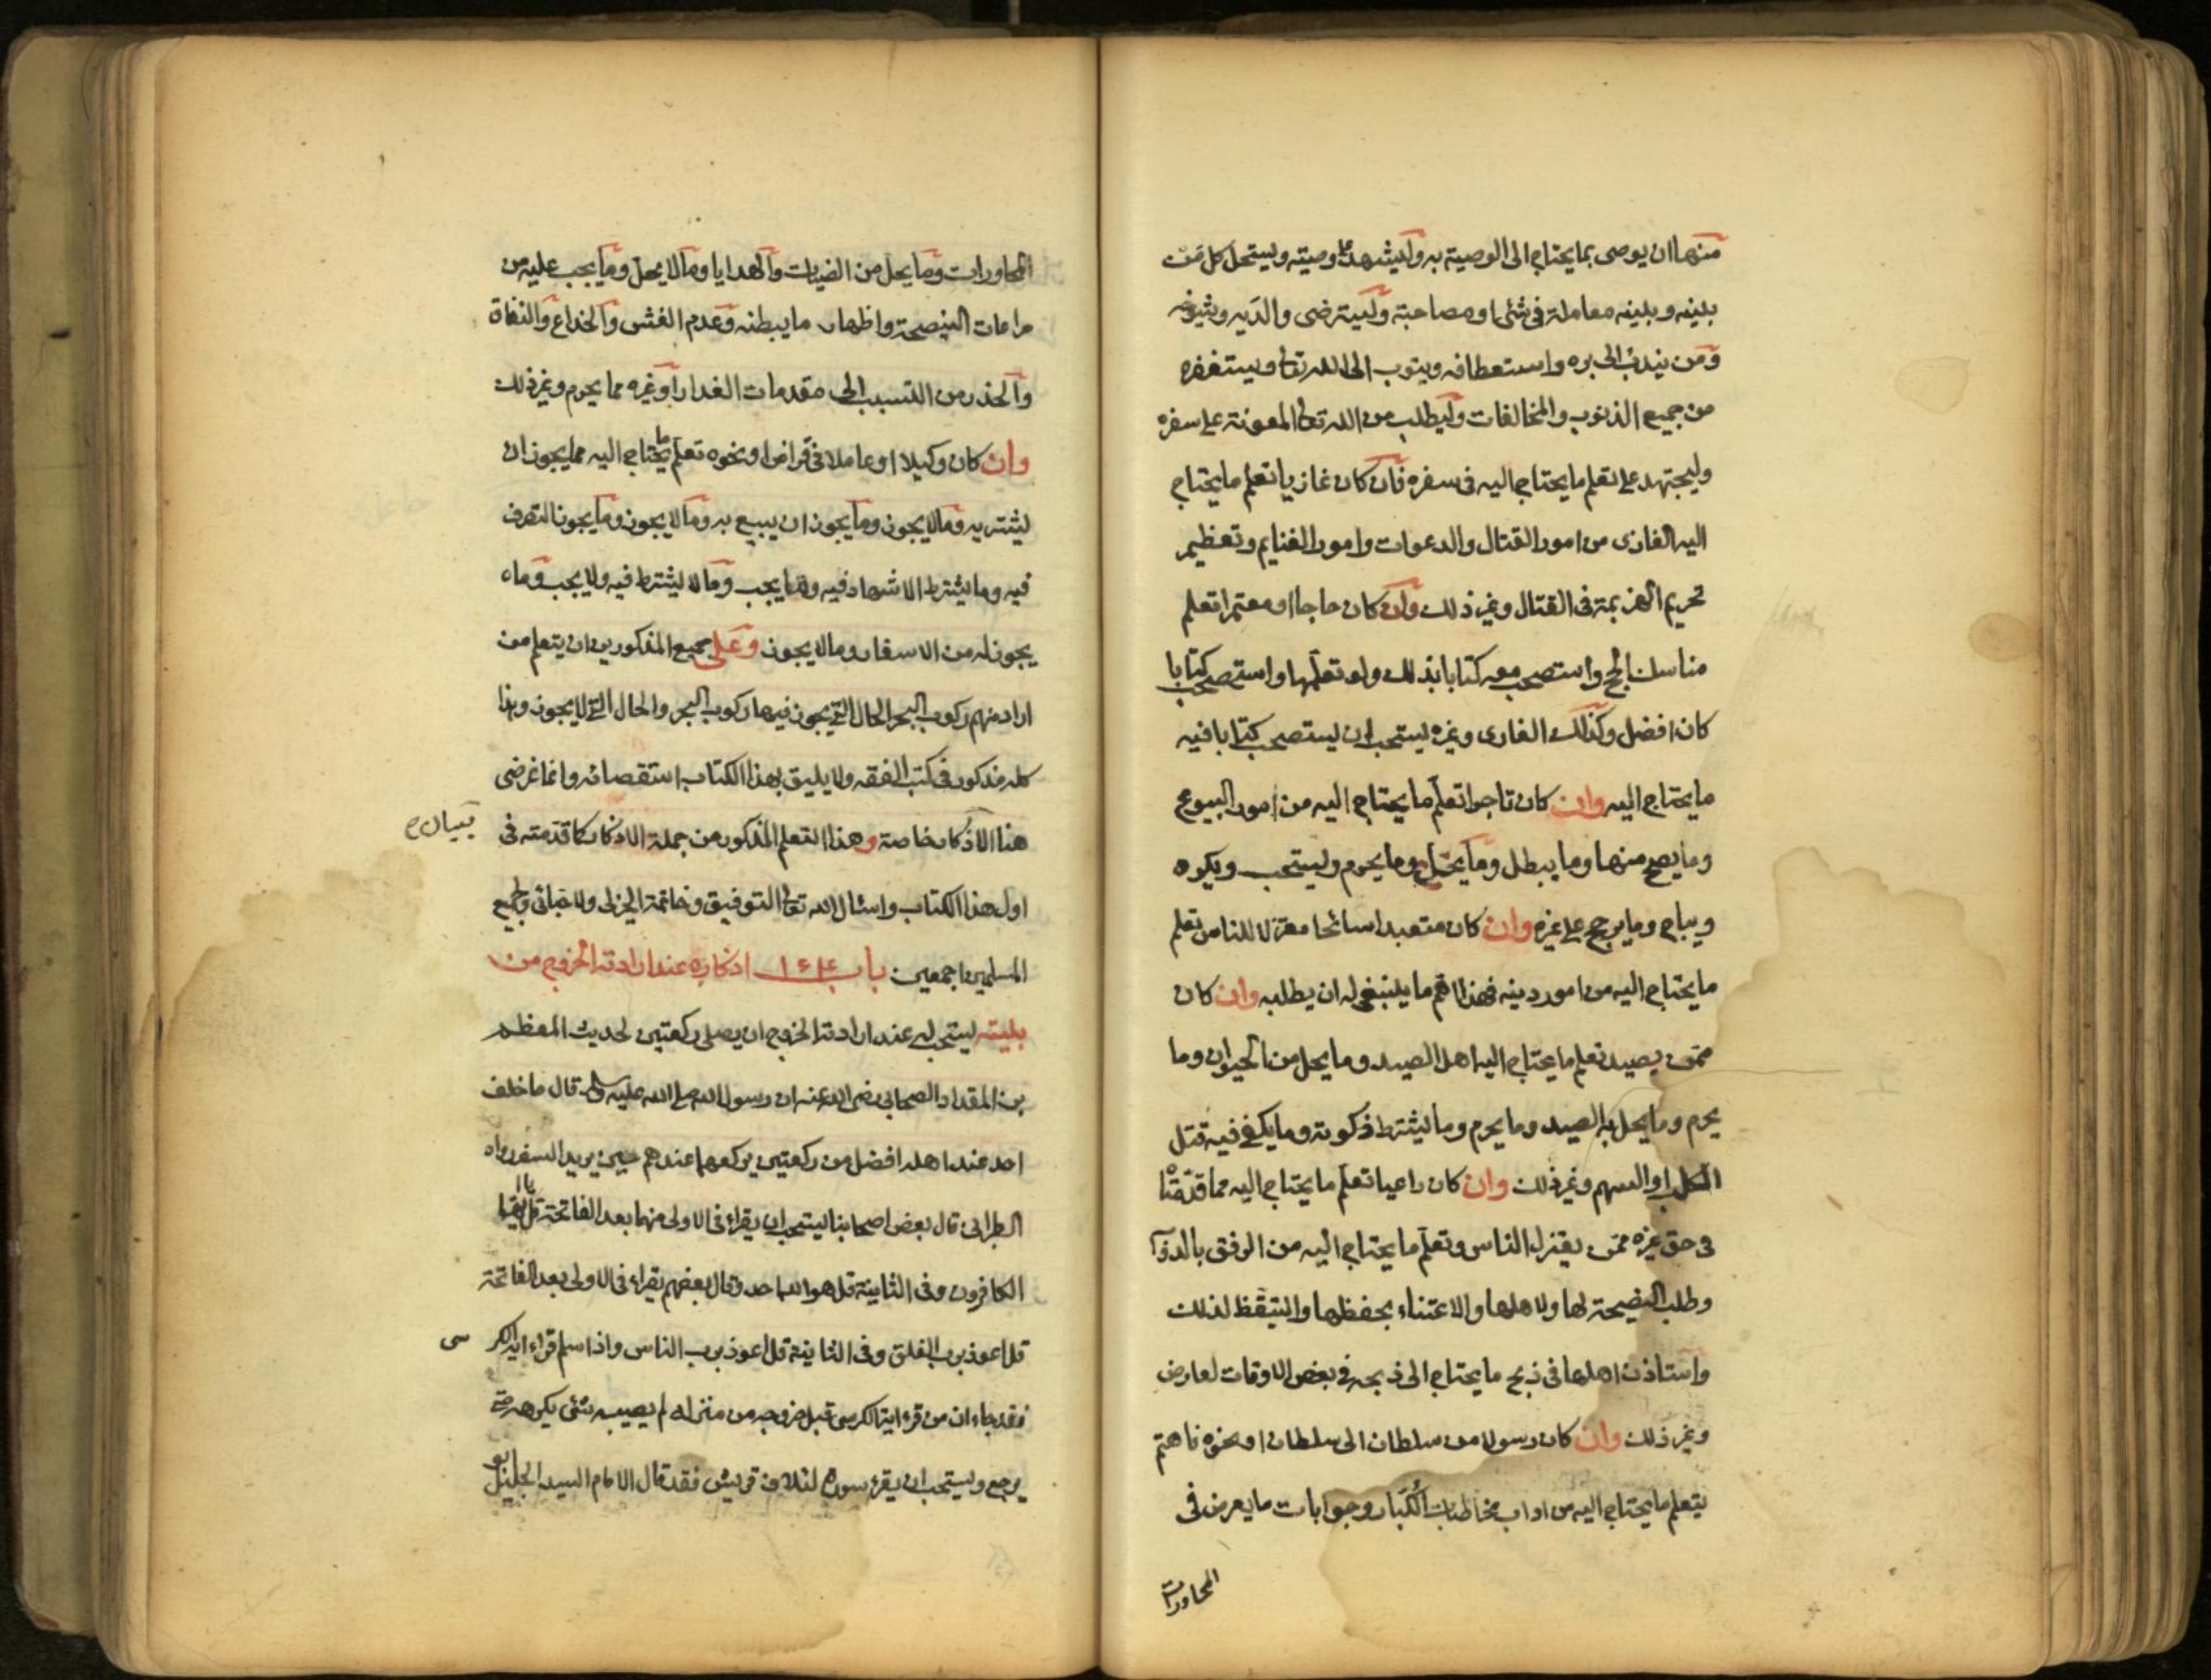 منها ان يوصى بما يحتاج الى الوصية به وليشهد على وصيته وليستحل كل من
بينه وبينه معاملة فى شئ او مصاحبة وليسترضى والديه وشيوخه
ومن يندب الى بره واستعطافه ويتوب الى الله تعالى ويستغفره
من جميع الذنوب والمخالفات وليطلب من الله تعالى المعونة على سفره
وليجتهد على تعلم ما يحتاج اليه فى سفره فان كان غازيا تعلم ما يحتاج
اليه الغازى من امور القتال والدعوات وامور الغنايم وتعظيم
تحريم الهزيمة فى القتال وغير ذلك وان كان حاجا او معتمرا تعلم
مناسك الحج واستصحب معه كتابا بذلك ولو تعلمها واستصحب كتابا
كان افضل وكذلك الغازى وغيره يستحب ان يستصحب كتابا فيه
ما يحتاج اليه وان كان تاجرا تعلم ما يحتاج اليه من امور البيوع
وما يصح منها وما يبطل وما يحل وما يحرم ويستحب ويكره
ويباح وما يرجح على غيره وان كان متعبدا سائحا معتزلا للناس تعلم
ما يحتاج اليه من امور دينه فهذا اهم ما ينبغى له ان يطلبه وان كان
ممن يصيد تعلم ما يحتاج اليه اهل الصيد وما يحل من الحيوان وما
يحرم وما يحل به الصيد وما يحرم وما يشترط ذكوته وما يكفى فيه قتل
الكلب او السهم وغير ذلك وان كان راعيا تعلم ما يحتاج اليه مما قدمنا
فى حق غيره ممن يعتزل الناس وتعلم ما يحتاج اليه من الرفق بالدوآ
وطلب النصيحة لها ولاهلها والاعتناء بحفظها والتيقظ لذلك
واستاذن اهلها فى ذبح ما يحتاج الى ذبحه فى بعض الاوقات لعارض
وغير ذلك وان كان رسولا من سلطان الى سلطان او نحوه فاهتم
يتعلم ما يحتاج اليه من اداب مخاطبات الكبار وجوابات ما يعرض فى
المحاورات
المحاورات وما يحل من الضيافات والهدايا وما لا يحل وما يجب عليه من
مراعات النصيحة واظهار ما يبطنه وعدم الغش والخداع والنفاق
والحذر من التسبب الى مقدمات الغدر او غيره مما يحرم وغير ذلك
وان كان وكيلا او عاملا فى قراض او نحوه تعلم ما يحتاج اليه مما يجوز ان
يشتريه وما لا يجوز وما يجوز ان يبيع به وما لا يجوز وما يجوز التصرف
فيه وما يشترط الاشهاد فيه وما يجب وما لا يشترط فيه ولا يجب وما
يجوز له من الاسفار وما لا يجوز وعلى جميع المذكورين ان يتعلم من
اراد منهم ركوب البحر الحال التى يجوز فيها ركوب البحر والحال التى لا يجوز وهذا
كله مذكور فى كتب الفقه ولا يليق بهذا الكتاب استقصائه وانما غرضى
هنا الاذكار خاصة وهذا التعلم المذكور من جملة الاذكار كما قدمته فى
اول هذا الكتاب واسئال الله تعالى التوفيق وخاتمة الخير لى ولاحبائى ولجميع
المسلمين اجمعين باب اذكاره عند ارادته الخروج من
بيته يستحب له عند ارادته الخروج ان يصلى ركعتين لحديث المعظم
بن المقداد الصحابى رضى الله عنه ان رسول الله صلى الله عليه وسلم قال ما خلف
احد عند اهله افضل من ركعتين يركعهما عندهم حين يريد السفر رواه
الطبرانى قال بعض اصحابنا يستحب ان يقراء فى الاولى منهما بعد الفاتحة قل يا ايها
الكافرون وفى الثانية قل هو الله احد وقال بعضهم يقراء فى الاولى بعد الفاتحة
قل اعوذ برب الفلق وفى الثانية قل اعوذ برب الناس واذا سلم قراء اية الكر سى
فقد جاء ان من قرء اية الكرسى قبل خروجه من منزله لم يصيبه شئ يكرهه حتى
يرجع ويستحب ان يقرء سورة لئلاف قريش فقد قال الامام السيد الجليل ابو